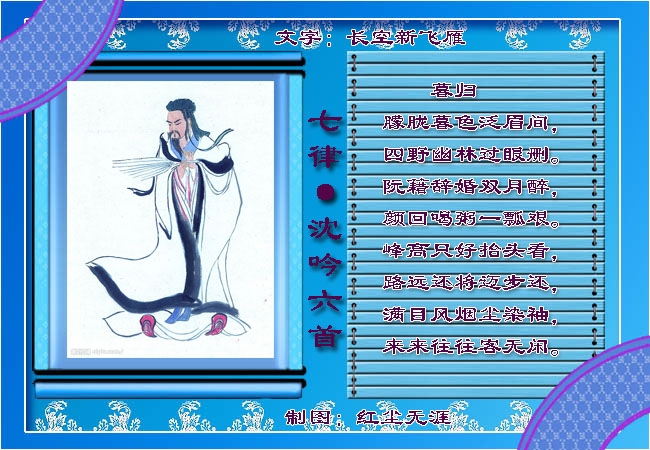 文字：长空新飞雁
七律●沈吟六首
暮归
朦胧暮色泛眉间，
四野幽林过眼删。
阮藉辞婚双月醉，
颜回喝粥一瓢艰。
峰高只好抬头看，
路远还将迈步还，
满目风烟尘染袖，
来来往往客无闲。
制图：红尘天涯